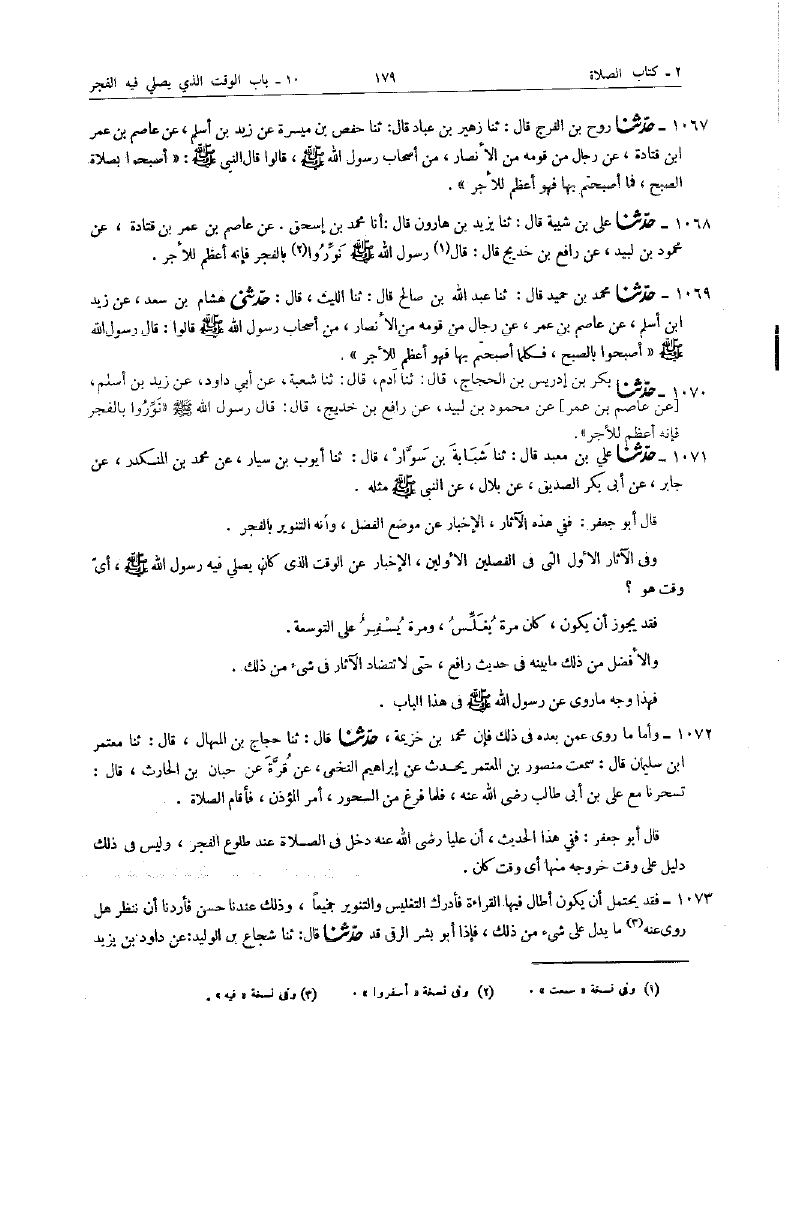 ٢ ـ كتاب الصلاة ١٧٩ ١٠ ـ باب الوقت الذي يصلي فيه الفجر
١٠٦٧ ـ حدّثنا روح بن الفرج قال : ثنا زهير بن عباد قال: ثنا حفص بن ميسرة عن زيد بن أسلم ، عن عاصم بن عمر
ابن قتادة ، عن رجال من قومه من الأنصار ، من أصحاب رسول الله ﷺ ، قالوا قال النبي ﷺ : « أصبحوا بصلاة
الصبح ، فما أصبحتم بها فهو أعظم للأجر » .
١٠٦٨ ـ حدّثنا على بن شيبة قال : ثنا يزيد بن هارون قال :أنا محمد بن إسحق . عن عاصم بن عمر بن قتادة ، عن
محمود بن لبيد ، عن رافع بن خديج قال : قال(١) رسول الله ﷺ نَوِّرُوا(٢) بالفجر فإنه أعظم للأجر .
١٠٦٩ ـ حدّثنا محمد بن حميد قال : ثنا عبد الله بن صالح قال : ثنا الليث ، قال : حدّثنى هشام بن سعد ، عن زيد
ابن أسلم ، عن عاصم بن عمر ، عن رجال من قومه من الأنصار ، من أصحاب رسول الله ﷺ قالوا : قال رسول الله
ﷺ « أصبحوا بالصبح ، فكلما أصبحتم بها فهو أعظم للأجر » .
١٠٧٠ ـ حدّثنا بكر بن إدريس بن الحجاج، قال: ثنا آدم، قال: ثنا شعبة، عن أبي داود، عن زيد بن أسلم،
[عن عاصم بن عمر] عن محمود بن لبيد، عن رافع بن خديج، قال: قال رسول الله ﷺ «نَوِّرُوا بالفجر
فإنه أعظم للأجر».
١٠٧١ ـ حدّثنا علي بن معبد قال : ثنا شَبَابَةَ بن سَوَّارْ ، قال : ثنا أيوب بن سيار ، عن محمد بن المنكدر ، عن
جابر ، عن أبى بكر الصديق ، عن بلال ، عن النبى ﷺ مثله .
قال أبو جعفر : ففي هذه الآثار ، الإخبار عن موضع الفضل ، وأنه التنوير بالفجر .
وفى الآثار الأول التى فى الفصلين الأولين ، الإخبار عن الوقت الذى كان يصلي فيه رسول الله ﷺ ، أىّ
وقت هو ؟
فقد يجوز أن يكون ، كان مرة يُغَلِّسُ ، ومرة يُسْفِرُ على التوسعة .
والأفضل من ذلك مابينه فى حديث رافع ، حتى لا تتضاد الآثار فى شىء من ذلك .
فهذا وجه ماروى عن رسول الله ﷺ فى هذا الباب .
١٠٧٢ ـ وأما ما روى عمن بعده فى ذلك فإن محمد بن خزيمة ، حدّثنا قال : ثنا حجاج بن المنهال ، قال : ثنا معتمر
ابن سليمان قال : سمعت منصور بن المعتمر يحدث عن إبراهيم النخعى ، عن قُرَّةَ عن حبان بن الحارث ، قال :
تسحرنا مع على بن أبى طالب رضى الله عنه ، فلما فرغ من السحور ، أمر المؤذن ، فأقام الصلاة .
قال أبو جعفر : ففي هذا الحديث ، أن عليا رضى الله عنه دخل فى الصلاة عند طلوع الفجر ، وليس فى ذلك
دليل على وقت خروجه منها أى وقت كان .
١٠٧٣ ـ فقد يحتمل أن يكون أطال فيها القراءة فأدرك التغليس والتنوير جميعاً ، وذلك عندنا حسن فأردنا أن ننظر هل
روى عنه(٣) ما يدل على شىء من ذلك ، فإذا أبو بشر الرقى قد حدّثنا قال: ثنا شجاع بن الوليد:عن داود بن يزيد
(١) وفى نسخة « سمعت » . (٢) وفى نسخة « أسفروا » . (٣) وفى نسخة « فيه » .